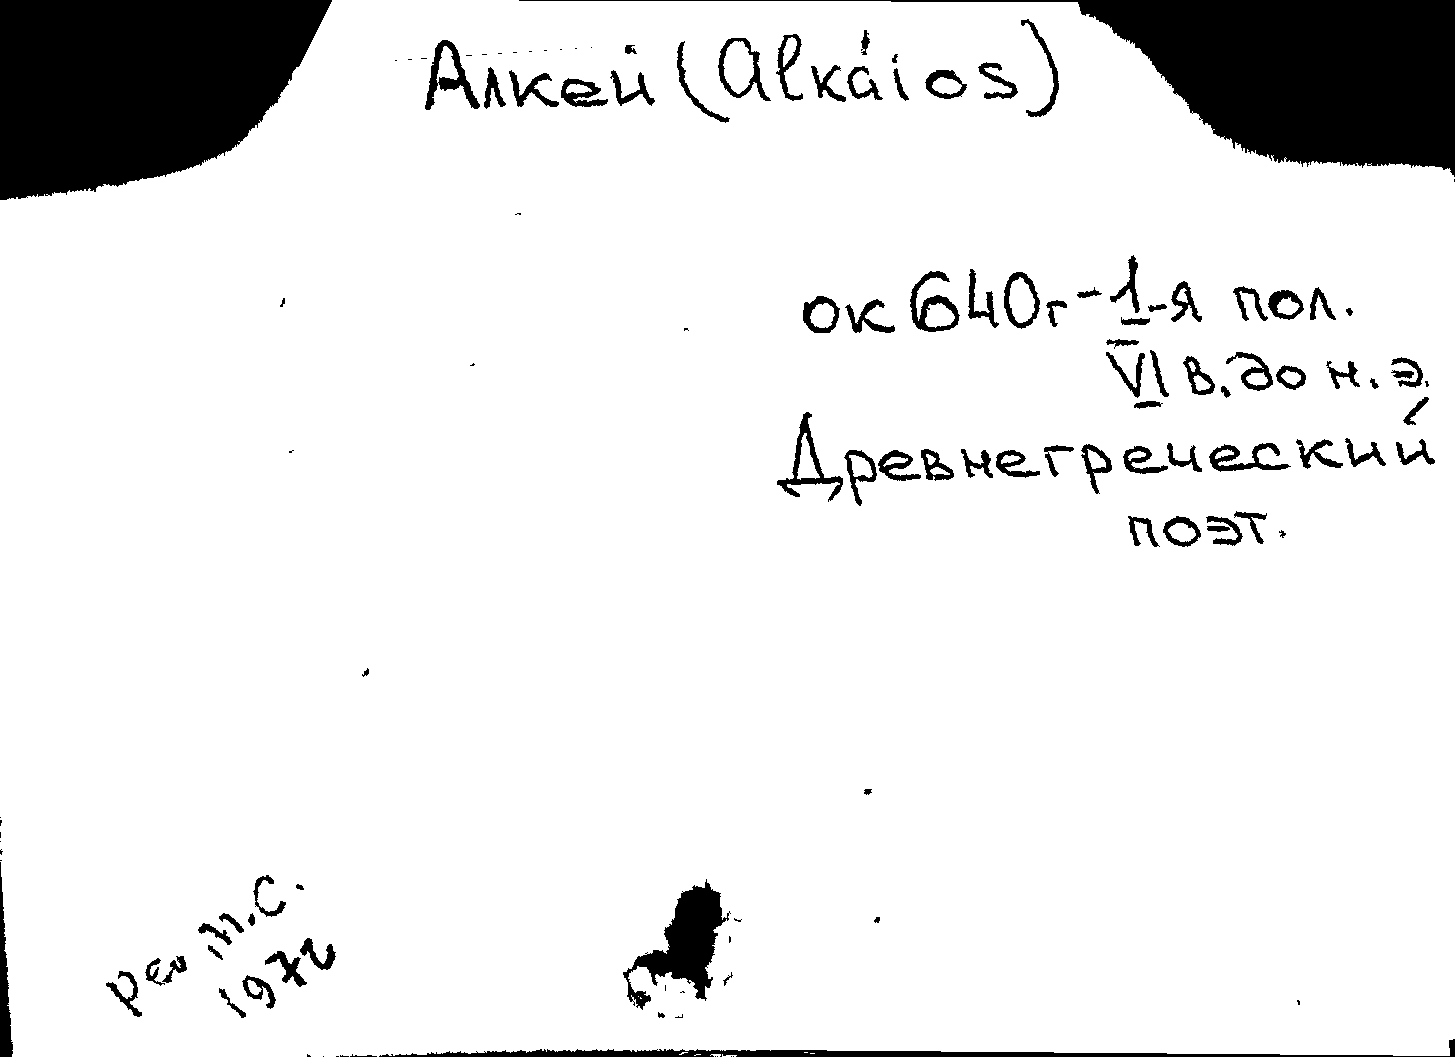 Алкей (Alkáios)
ок 640г - 1-я пол.
VI в. до н. э.
Древнегреческий
поэт.
М.С.
1972